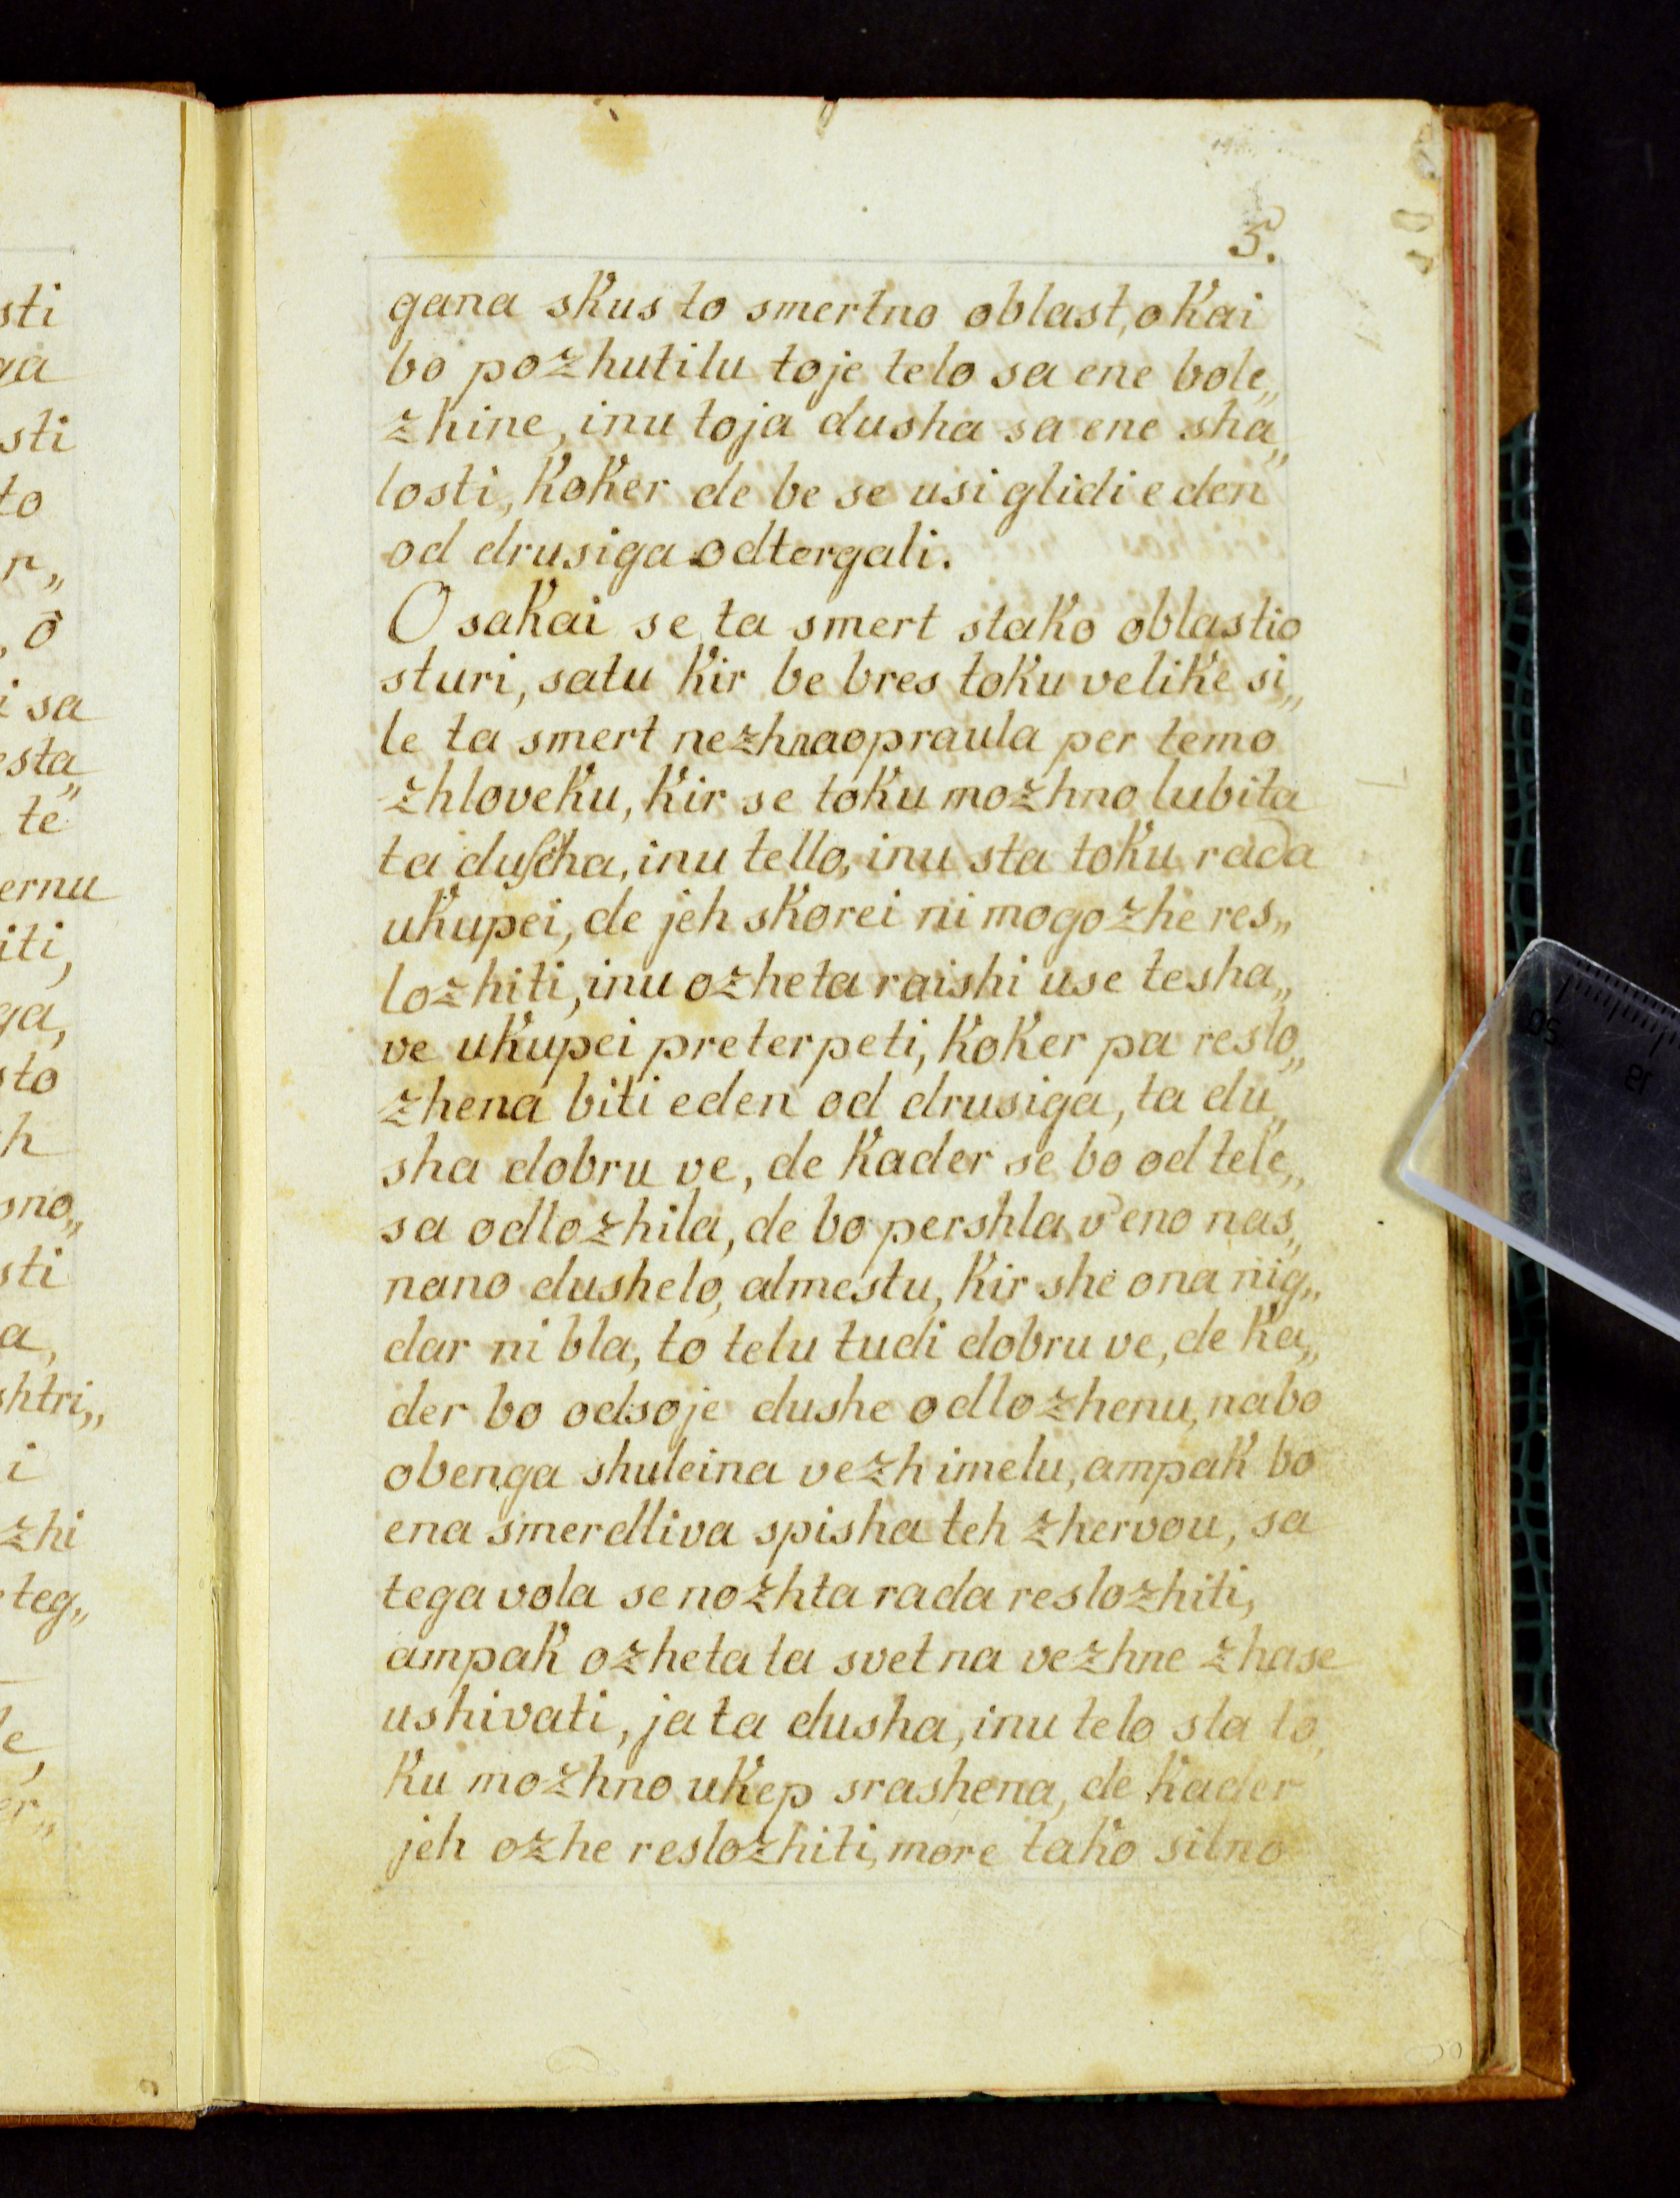 5.
gana skus to smertno oblast, o kai
bo pozhutilu toje telo sa ene bole„
zhine, inu toja dusha sa ene sha„
losti, koker de be se usi glidi eden
od drusiga odtergali.
O sakai se ta smert stako oblastio
sturi, satu kir be bres toku velike si„
le ta smert nezh naopraula per temo
zhloveku, kir se toku mozhno lubita
ta duscha, inu tello, inu sta toku rada
ukupei, de jeh skorei ni mogozhe res„
lozhiti, inu ozheta raishi use tesha„
ve ukupei preterpeti, koker pa reslo„
zhena biti eden od drusiga, ta du„
sha dobru ve, de kader se bo od tele„
sa odlozhila, de bo pershla v eno nas„
nano dushelo, almestu, kir she ona nig„
dar ni bla, to telu tudi dobru ve, de ka„
der bo odsoje dushe odlozhenu, nabo
obenga shuleina vezh imelu, ampak bo
ena smerdliva spisha teh zhervou, sa
tega vola se nozhta rada reslozhiti,
ampak ozheta ta svet na vezhne zhase
ushivati, ja ta dusha, inu telo sta to„
ku mozhno ukep srashena, de kader
jeh ozhe reslozhiti, more tako silno
sti
ga
sti
to
r„
, ô
i sa
esta„
te
ernu
iti,
ga,
sto
h
sno„
sti
a,
shtri„
i
zhi
teg„
le,
er„